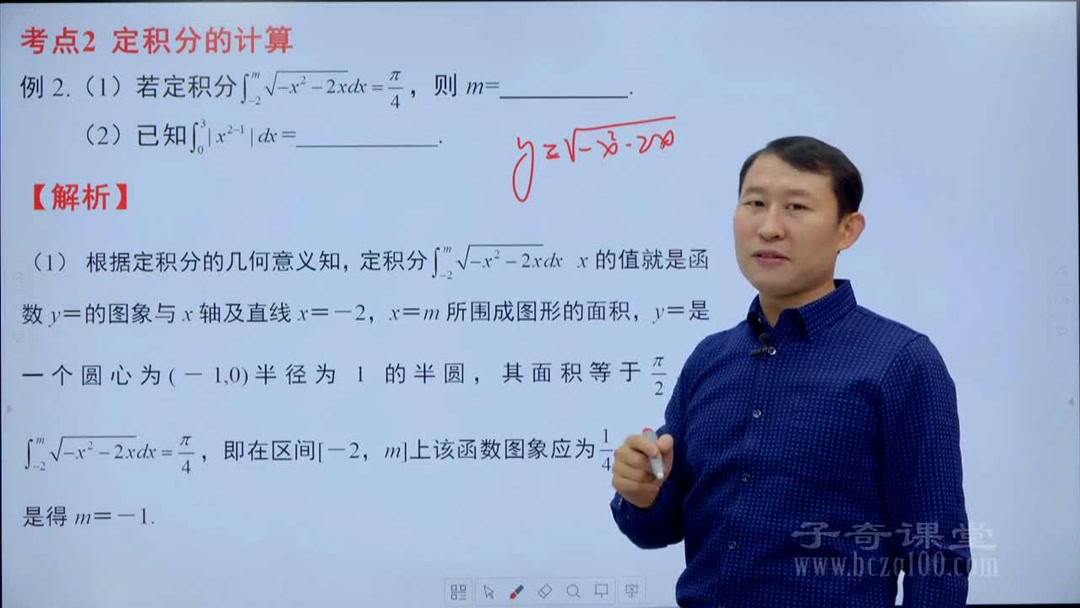 考点2 定积分的计算
例 2.（1）若定积分∫_{-2}^{m}√(-x²-2x)dx=π/4，则 m=________.
（2）已知∫_{0}^{3}|x^{2-1}|dx=________.
y=√(-x²-2x)
【解析】
（1） 根据定积分的几何意义知，定积分∫_{-2}^{m}√(-x²-2x)dx x 的值就是函
数 y＝的图象与 x 轴及直线 x＝－2，x＝m 所围成图形的面积，y＝是
一个圆心为(－1,0)半径为 1 的半圆，其面积等于π/2
∫_{-2}^{m}√(-x²-2x)dx=π/4，即在区间[－2，m]上该函数图象应为1/4
是得 m＝－1.
子奇课堂
www.bczq100.com